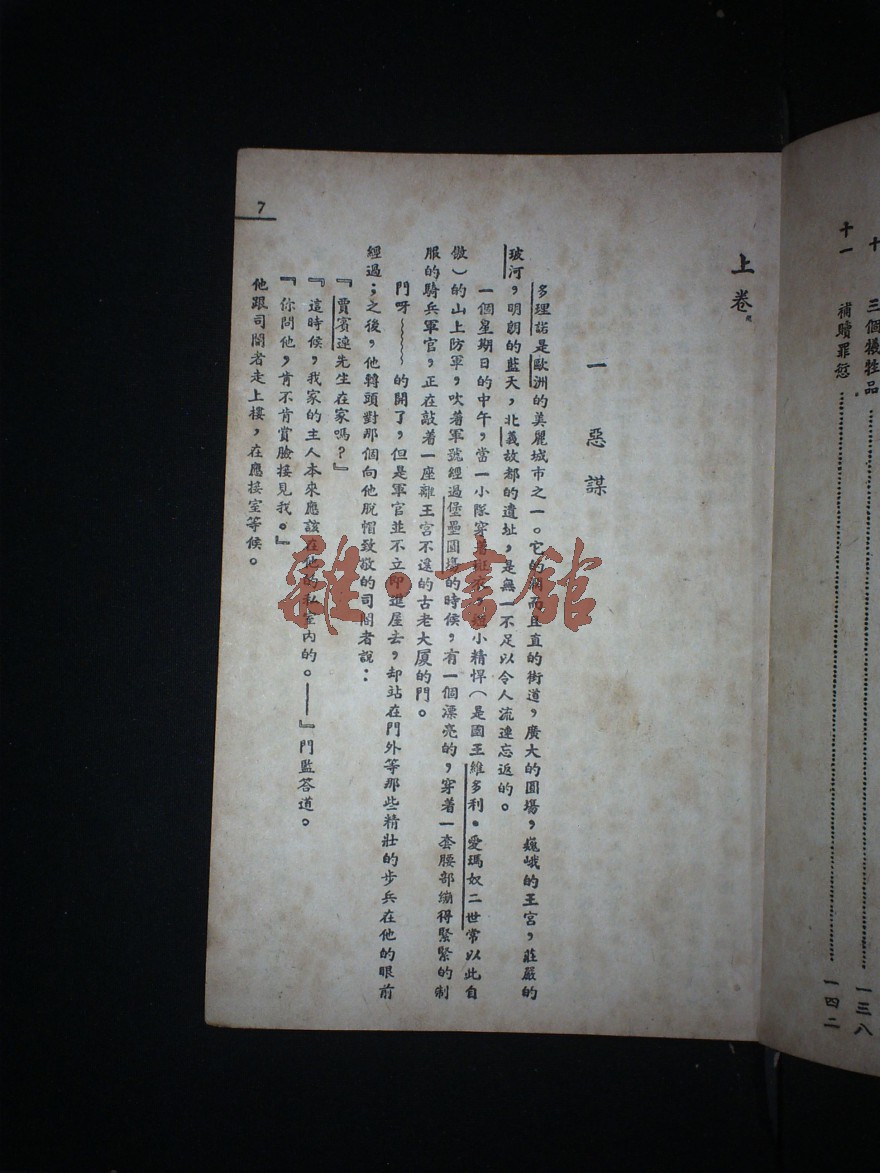 十　三個犧牲品……一三八
十一　補贖罪愆……一四二
上卷
一　惡謀
多理諾是歐洲的美麗城市之一。它的　而且直的街道，廣大的圓場，巍峨的王宮，莊嚴的
玻河，明朗的藍天，北義故都的遺址，是無一不足以令人流連忘返的。
一個星期日的中午，當一小隊穿　　　小精悍（是國王維多利·愛瑪奴二世常以此自
傲）的山上防軍，吹着軍號經過堡壘圓場的時候，有一個漂亮的，穿着一套腰部綳得緊緊的制
服的騎兵軍官，正在敲着一座離王宮不遠的古老大厦的門。
門呀～～～的開了，但是軍官並不立即進屋去，却站在門外等那些精壯的步兵在他的眼前
經過；之後，他轉頭對那個向他脫帽致敬的司閽者說：
『賈賓達先生在家嗎？』
『這時候，我家的主人本來應該在他的私室內的。——』門監答道。
『你問他，肯不肯賞臉接見我。』
他跟司閽者走上樓，在應接室等候。
7
雜·書館